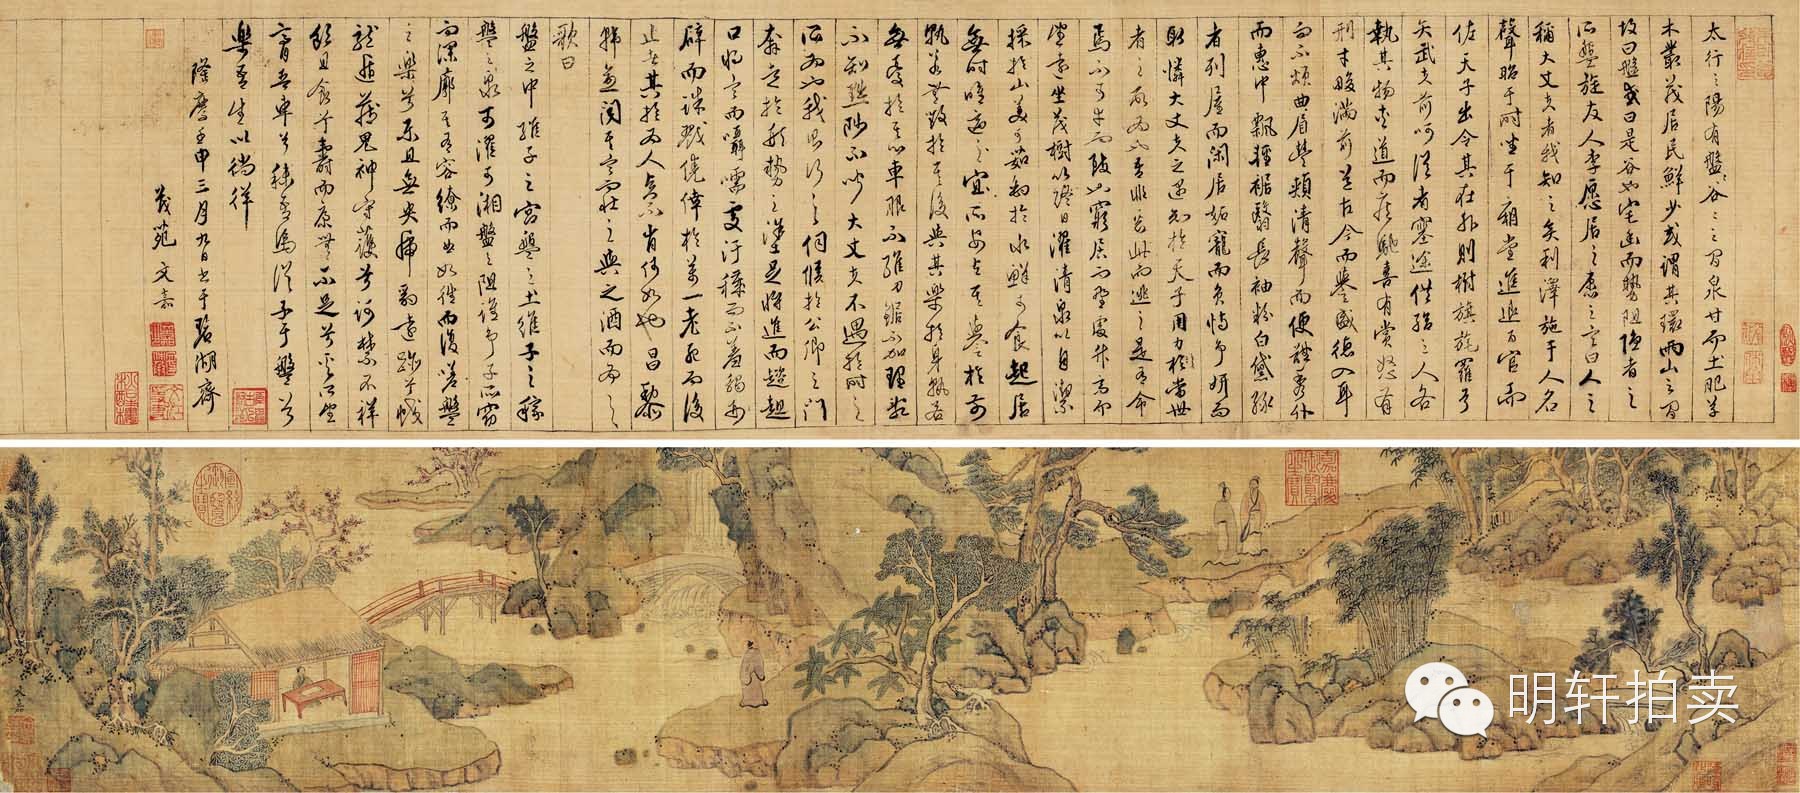 太行之陽有盤谷〻之間泉甘而土肥草
木叢茂居民鮮少或謂其環兩山之間
故曰盤或曰是谷也宅幽而勢阻隱者之
所盤旋友人李愿居之愿之言曰人之
稱大丈夫者我知之矣利澤施于人名
聲昭于時坐于廟堂進退百官而
佐天子出令其在外則樹旗旄羅弓
矢武夫前呵從者塞途供給之人各
執其物夾道而疾馳喜有賞怒有
刑才畯滿前道古今而譽盛德入耳
而不煩曲眉豐頰清聲而便體秀外
而惠中飄輕裾翳長袖粉白黛綠
者列屋而閑居妬寵而負恃爭妍而
取憐大丈夫之遇知於天子用力於當世
者之所為也吾非惡此而逃之是有命
焉不可幸而致也窮居而野處升高而
望遠坐茂樹以終日濯清泉以自潔
採於山美可茹釣於水鮮可食起居
無時唯適之宜與其譽於前
孰若無毀於其後與其樂於身孰若
無憂於其心車服不維刀鋸不加理亂
不知黜陟不聞大丈夫不遇於時之
所為也我則行之伺候於公卿之門
奔走於形勢之塗足將進而趑趄
口將言而囁嚅處汙穢而不羞觸刑
辟而誅戮僥倖於萬一老死而後
止者其於為人賢不肖何如也昌黎
韓愈聞其言而壯之與之酒而為之
歌曰
盤之中維子之宮盤之土維子之稼
盤之泉可濯可湘盤之阻誰爭子所窈
而深廓其有容繚而曲如往而復嗟盤
之樂兮樂且無央虎豹遠跡兮蛟
龍遁藏鬼神守護兮呵禁不祥
飲且食兮壽而康無不足兮奚所望
膏吾車兮秣吾馬從子于盤兮
樂吾生以徜徉
隆慶壬申三月九日書于碧湖齋
茂苑文嘉
文嘉
明轩拍卖